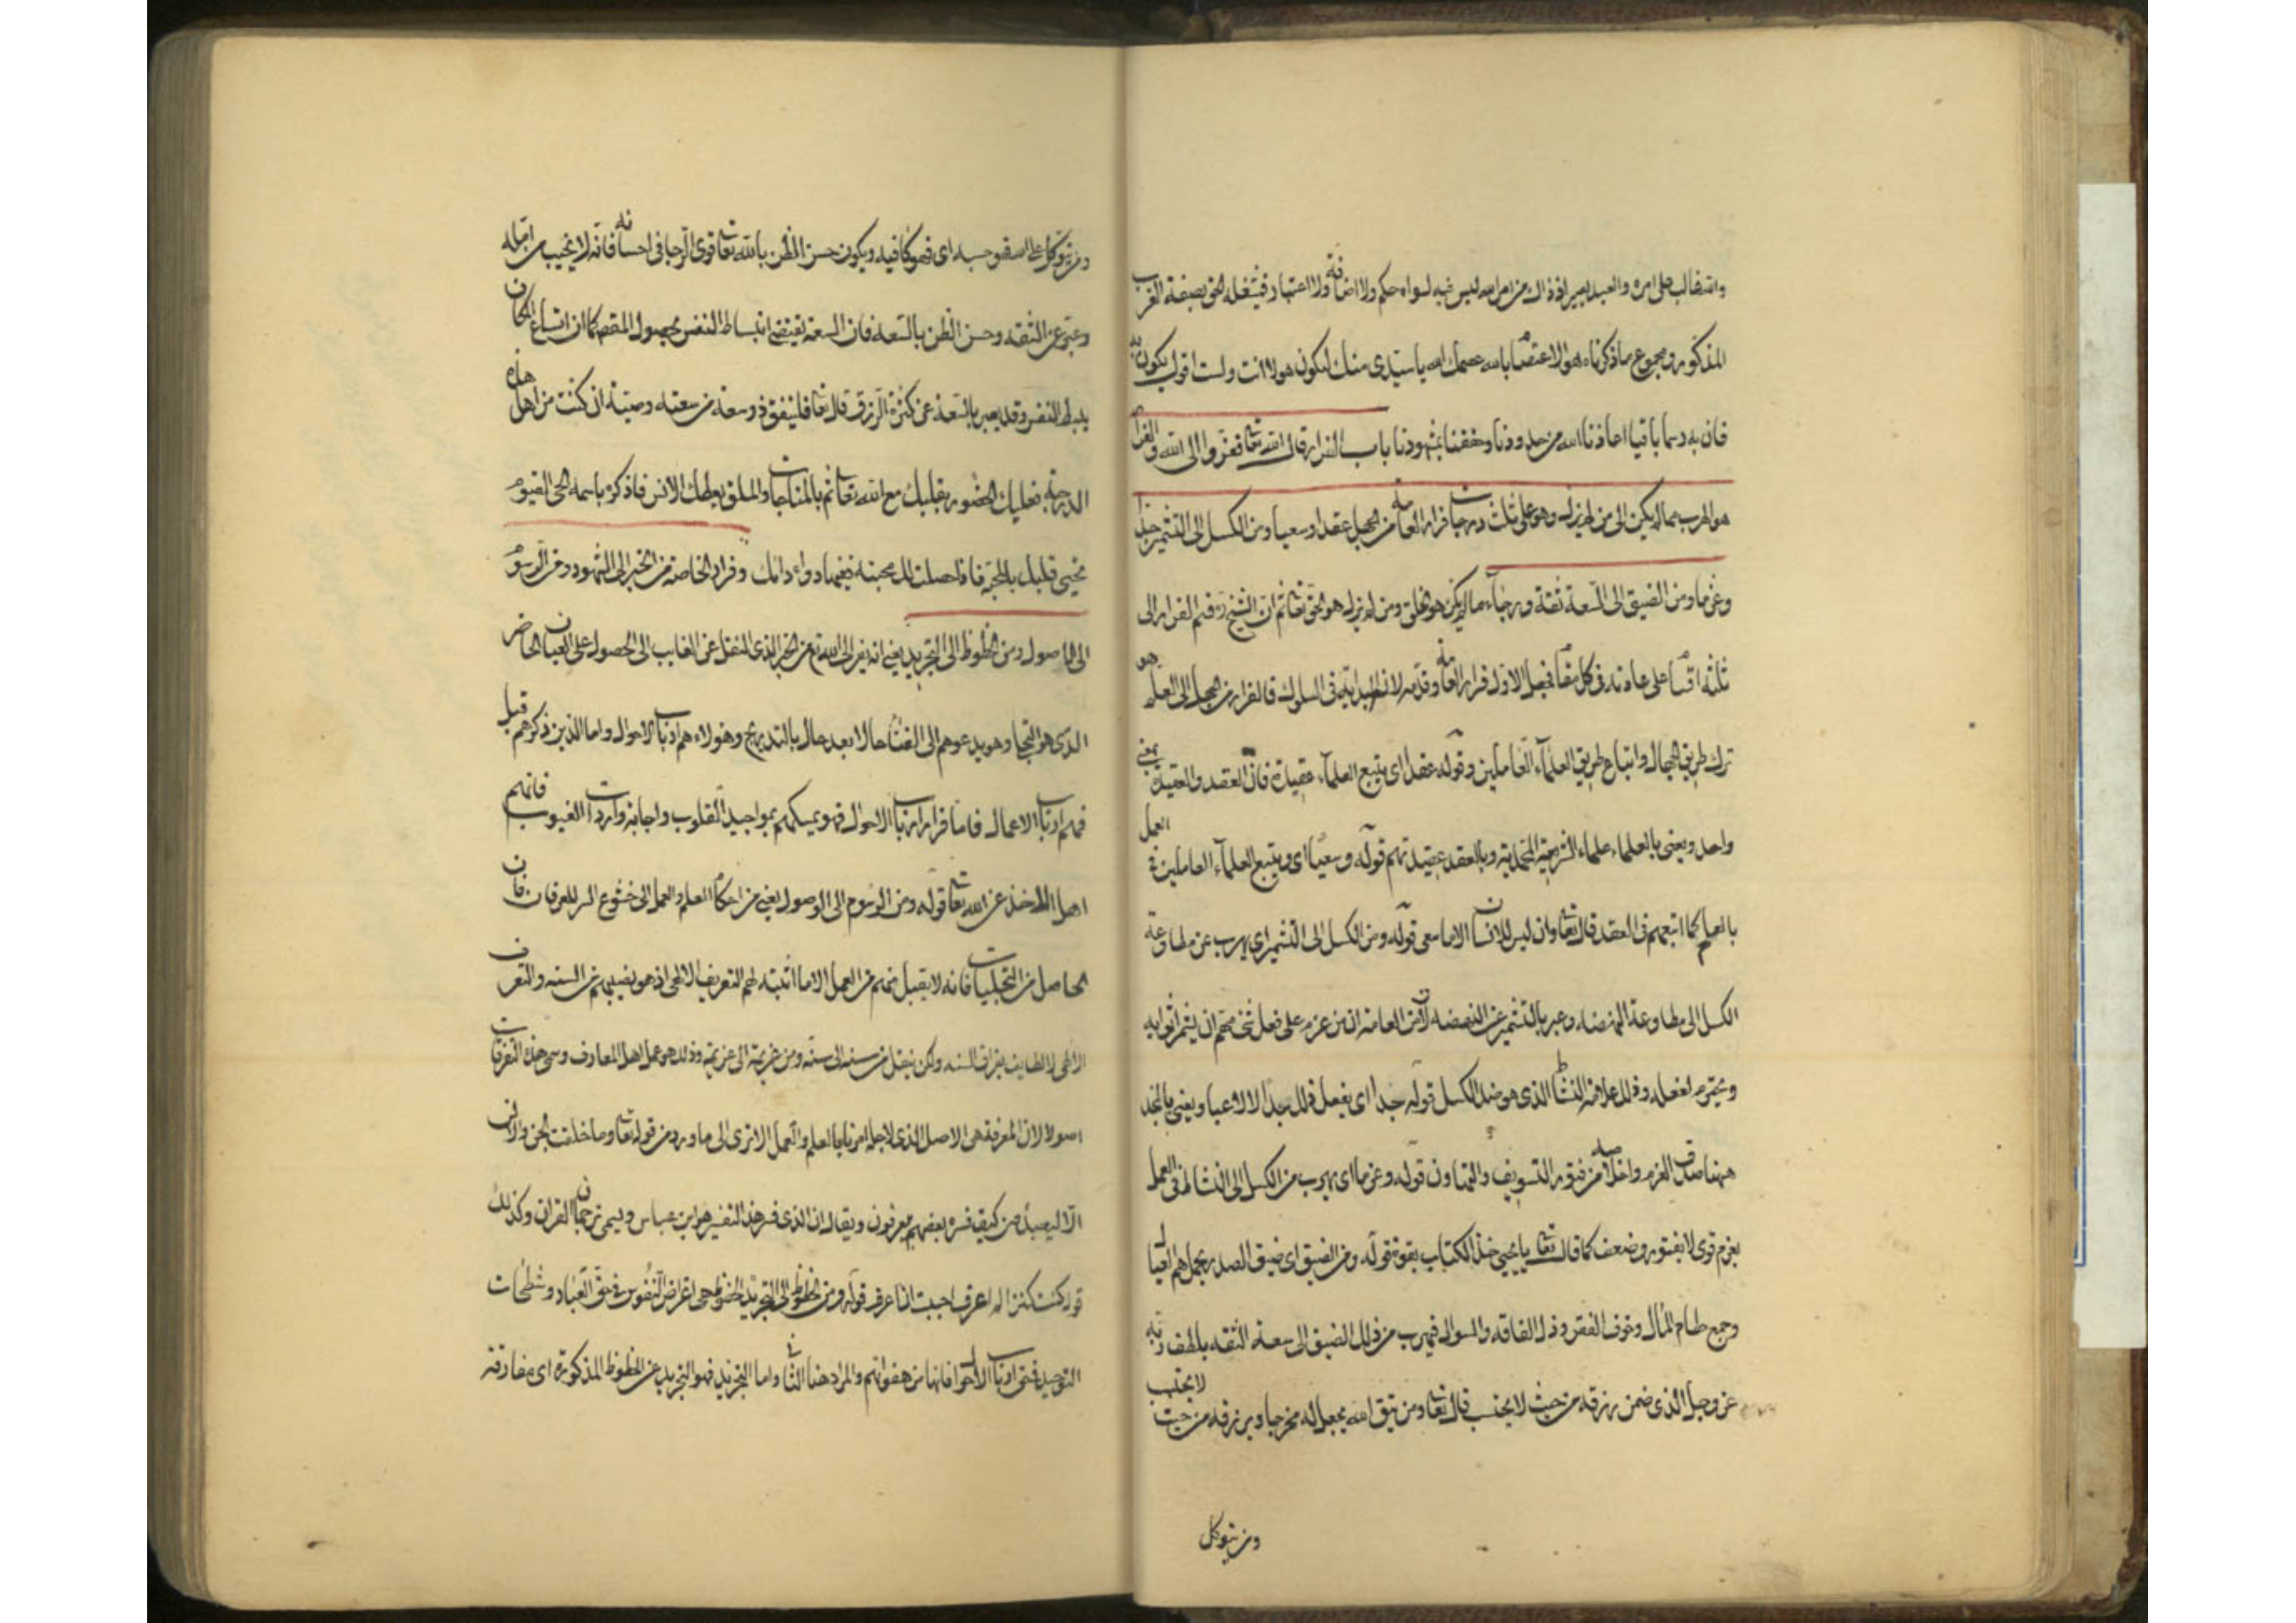 والله غالب على امره والعبد يصير اذ ذاك من امر الله ليس فيه لسواه حكم ولا اضافة ولا اعتبار فيشغله الحق بصفة القرب
المذكور ومجموع ما ذكرناه هو الاعتصام بالله عصمك الله يا سيدى منك ليكون هو لا انت ولست اقول يكون به
فان به رسما باقيا اعاذنا الله من حدودنا وخفنا بشهودنا باب الفرار قال الله تعا ففروا الى الله والفرار
هو الهرب مما لم يكن الى من لم يزل وهو على ثلث درجات فرار العامة من الجهل عقدا وسعيا ومن الكسل الى التشمير جدا
وعزما ومن الضيق الى السعة ثقة ورجاء ما لم يكن هو الخلق ومن لم يزل هو الحق تعا ثم ان الشيخ ره قسم الفرار الى
ثلثة اقسام على عادته فى كل مقام فجعل الاول فرار العامة وقدمه لانه البداية فى السلوك فالفرار من الجهل الى العلم هو
ترك طريق الجهال واتباع طريق العلماء العاملين وقوله عقدا اى يتبع العلماء عقيدة فان العقد والعقيدة بمعنى
واحد ويعنى بالعلماء علماء الشريعة المحمدية وبالعقد عقيدتهم قوله وسعيا اى ويتبع العلماء العاملين فى العمل
بالعلم كما اتبعهم فى العقد قال تعا وان ليس للانسان الا ما سعى قوله ومن الكسل الى التشمير اى يهرب عن مطاوعة
الكسل الى مطاوعة النهضة وعبر بالتشمير عن النهضة لان العامة ان من عزم على فعل شئ مهم ان يشمر اثوابه
ويتحزم لفعله وذلك علامة النشاط الذى هو ضد الكسل قوله جدا اى يفعل ذلك جدا لا لاعبا ويعنى بالجد
ههنا صدق العزم واخلاصه من فتور التسويف والتهاون قوله وعزما اى يهرب من الكسل الى النشاط فى العمل
بعزم قوى لا بفتور وضعف كما قال تعا يا يحيى خذ الكتاب بقوة قوله ومن الضيق اى ضيق الصدر بحمل هم العيال
وجمع حطام المال وخوف الفقر وذل الفاقة والسوال فيهرب من ذلك الضيق الى سعة الثقة بلطف ربه
عز وجل الذى ضمن رزقه من حيث لا يحتسب قال تعا ومن يتق الله يجعل له مخرجا ويرزقه من حيث لا يحتسب
ومن يتوكل
ومن يتوكل على الله فهو حسبه اى فهو كافيه ويكون حسن الظن بالله تعا قوى الرجا فى احسانه فانه لا يخيب من امله
وعبر عن الثقة وحسن الظن بالسعة فان السعة تقتضى انبساط النفس بحصول المقصد كما ان اتساع المكان
يبسط النفس وقد يعبر بالسعة عن كثرة الرزق قال تعا فلينفق ذو سعة من سعته وصية ان كنت من اهل هذه
الدرجة فعليك بالحضور بقلبك مع الله تعا ثم بالمناجات والملق يعطك الانس فاذكره باسمه الحى القيوم
يحيى قلبك بالمحبة فاذا حصلت لك محبته ففيها دواء دائك وفرار الخاصة من الخبر الى الشهود ومن الرسوم
الى الاصول ومن الحظوظ الى التجريد يعنى انه يفر الى الله تع من الخبر الذى النقل عن الغايب الى الحصول على العيان الحاضر
الذى هو التجلى وهو يدعوهم الى الفناء حالا بعد حال بالتدريج وهولاء هم ارباب الاحوال واما الذين ذكرهم قبل
فهم ارباب الاعمال فاما فرار ارباب الاحوال فهو تمسكهم بمواجيد القلوب واجابة واردات الغيوب فانهم
اهل الاخذ عن الله تعا قوله ومن الرسوم الى الاصول يعنى من احكام العلم والعمل الى خشوع السر للعرفان فان
الحاصل من التجليات فانه لا يقبل منهم من العمل الا ما اثبته لهم التعريف الالهى اذ هو نصيبهم من السنه والتعرف
الالهى لا يطالب بفراق السنه ولكن ينقل من سنه الى سنه ومن عزيمة الى عزيمة وذلك هو عمل اهل المعارف وسمى هذه التعرفات
اصولا لان المعرفة هى الاصل الذى لاجله امرنا بالعلم والعمل الا ترى الى ما ورد من قوله تعا وما خلقت الجن والانس
الا ليعبدون كيف فسره بعضهم ليعرفون ويقال ان الذى فسر هذا التفسير هو ابن عباس ويسمى ترجمان القران وكذلك
قوله كنت كنزا لم اعرف احببت ان اعرف قوله ومن الحظوظ الى التجريد الحظوظ هى اغراض النفوس فى حق العباد وشطحات
التوحيد فى حق ارباب الاحوال فانها من هفواتهم والمراد هنا الثانى واما التجريد فهو التجريد عن الحظوظ المذكورة اى مفارقته